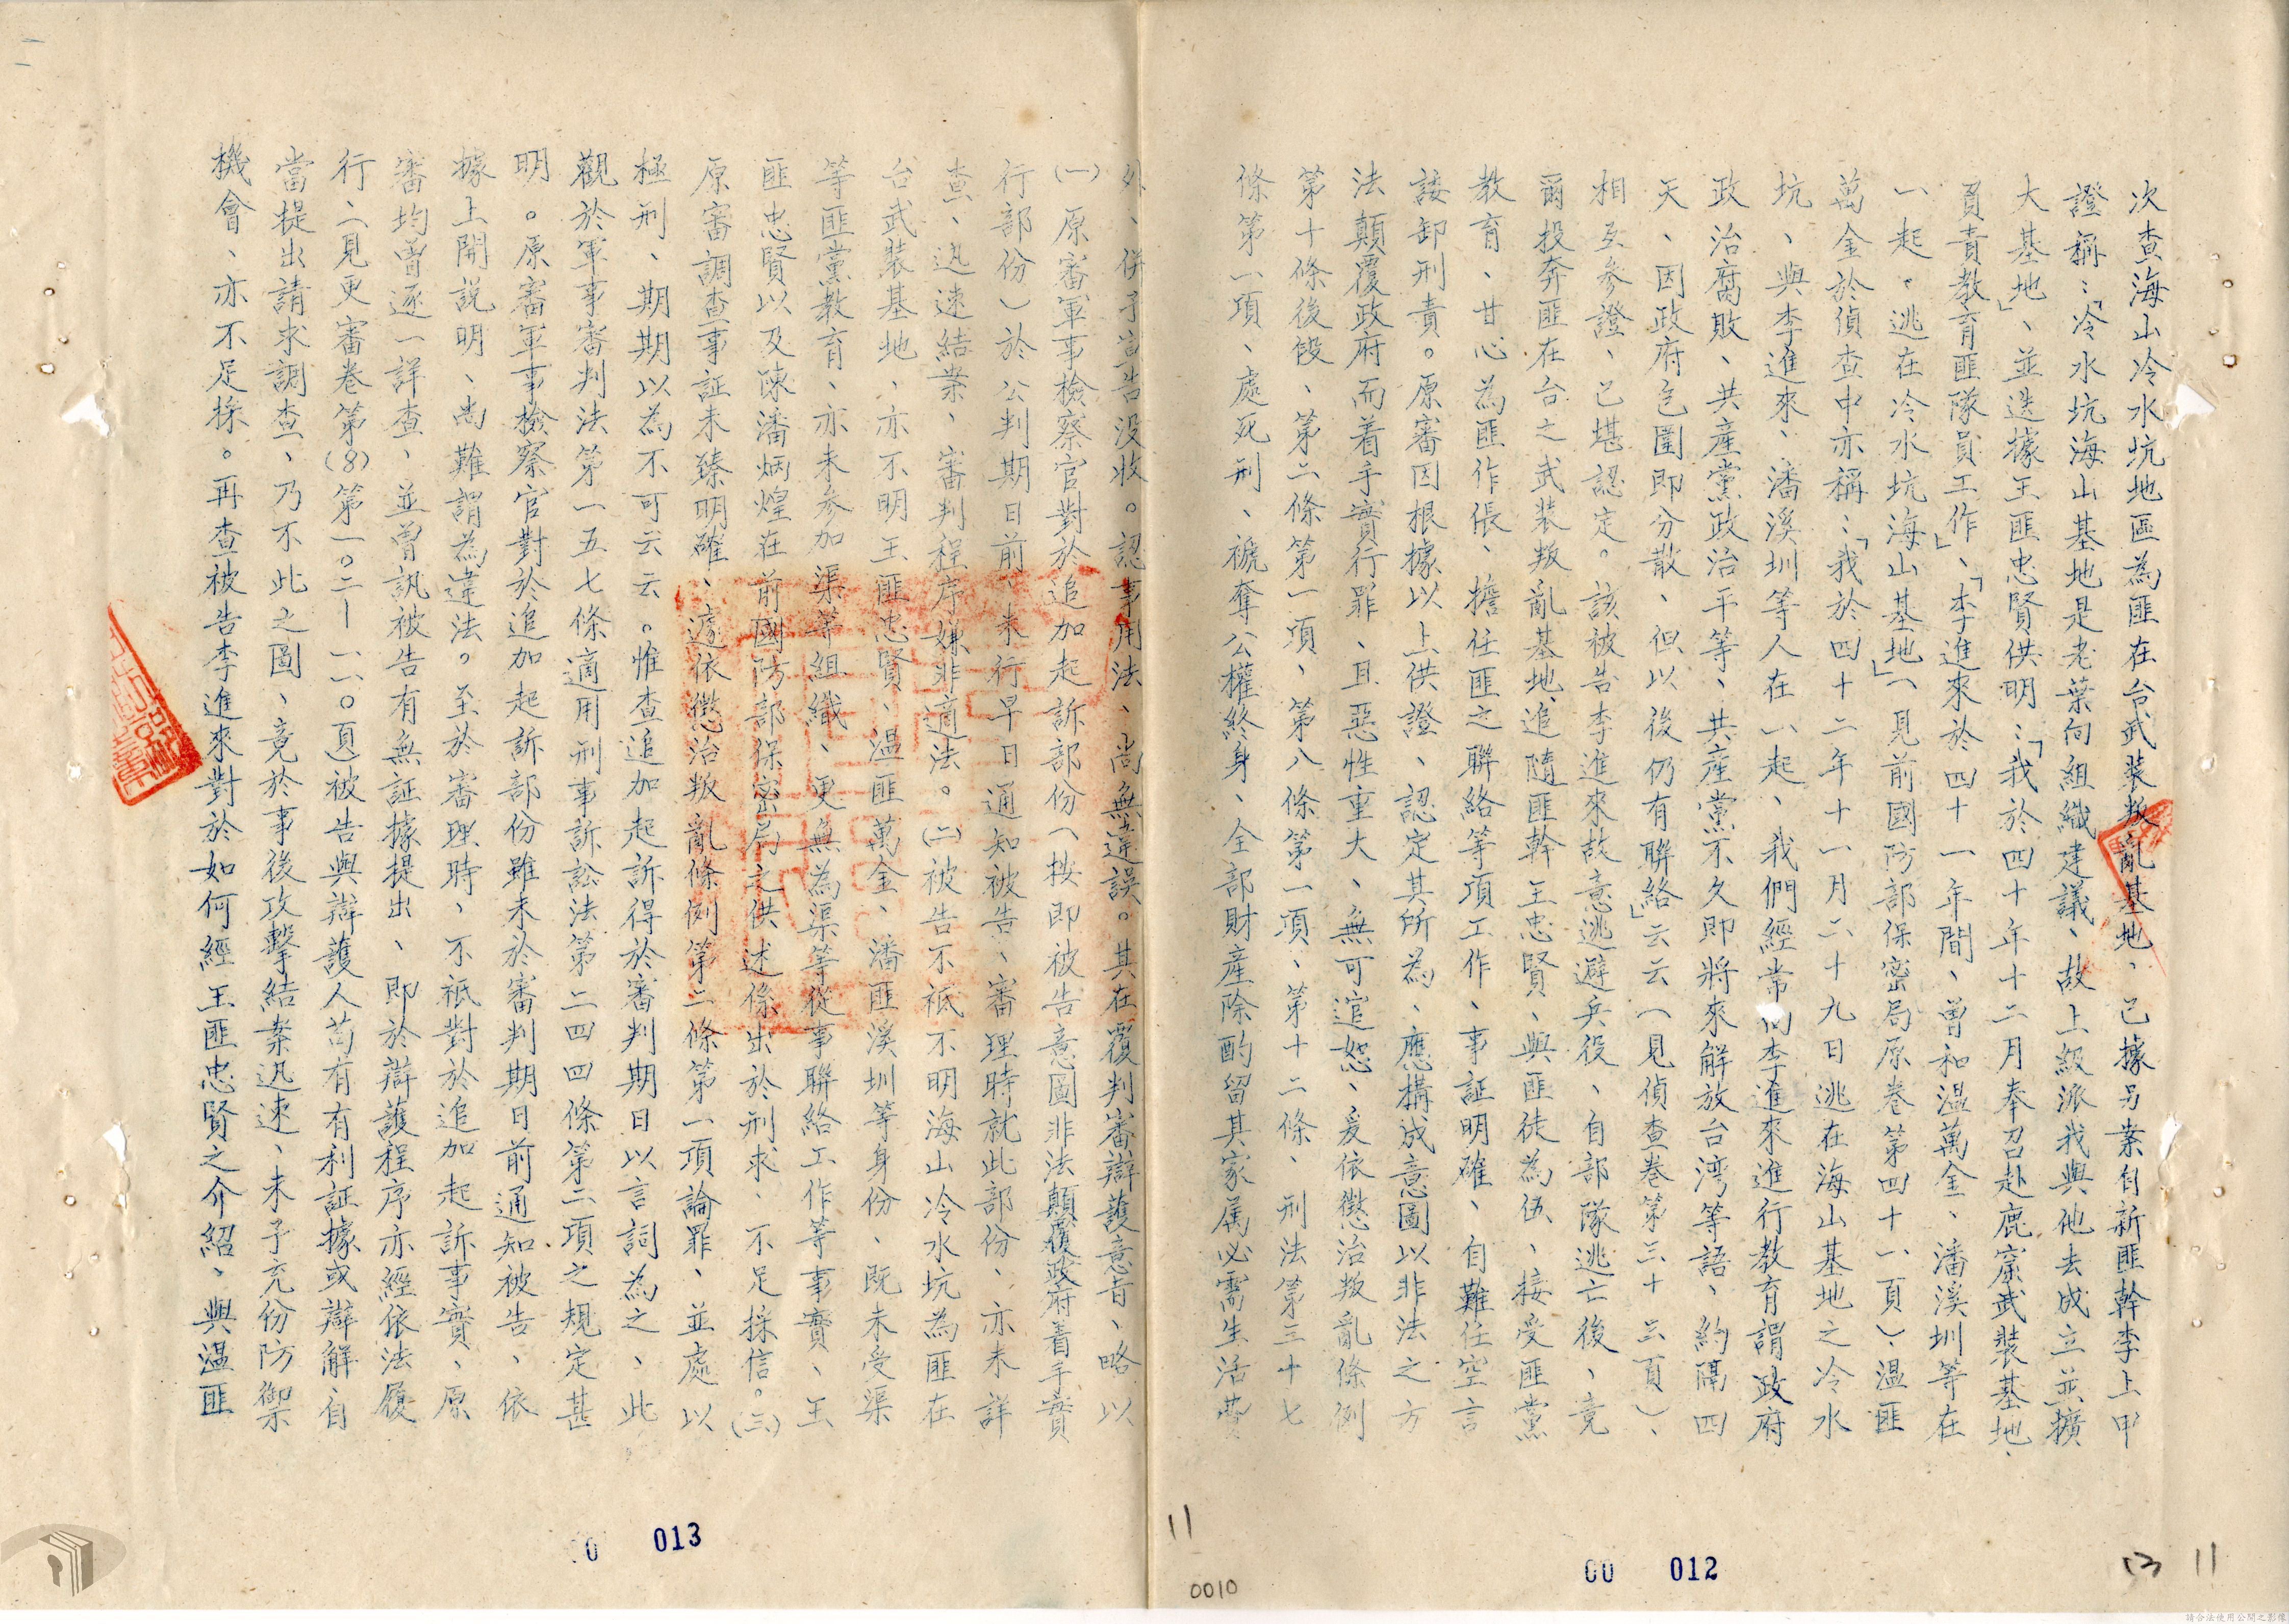 次查海山冷水坑地區為匪在台武裝叛亂基地、已據另案自新匪幹李上甲
證稱：「冷水坑海山基地是老葉向組織建議、故上級派我與他去成立並擴
大基地」、並迭據王匪忠賢供明：「我於四十年十二月奉召赴鹿窟武裝基地、
負責教育匪隊員工作」、「李進來於四十一年間、曾和溫萬金、潘溪圳等在
一起。逃在冷水坑海山基地」（見前國防部保密局原卷第四十一頁）、溫匪
萬金於偵查中亦稱：「我於四十二年十一月二十九日逃在海山基地之冷水
坑、與李進來、潘溪圳等人在一起、我們經常向李進來進行教育謂政府
政治腐敗、共產黨政治平等、共產黨不久即將來解放台湾等語、約隔四
天、因政府包圍即分散、但以後仍有聯絡」云云（見偵查卷第三十三頁）、
相互參證、已堪認定。該被告李進來故意逃避兵役、自部隊逃亡後、竟
爾投奔匪在台之武装叛亂基地追隨匪幹王忠賢、與匪徒為伍、接受匪黨
教育、甘心為匪作倀、擔任匪之聯絡等項工作、事証明確、自難任空言
諉卸刑責。原審因根據以上供證、認定其所為、應構成意圖以非法之方
法顛覆政府而着手實行罪、且惡性重大、無可逭恕、爰依懲治叛亂條例
第十條後段、第二條第一項、第八條第一項、第十二條、刑法第三十七
條第一項、處死刑、褫奪公權終身、全部財產除酌留其家属必需生活費
外、併予宣告没收。認事用法、尚無違誤。其在覆判審辯護意旨、略以
㈠原審軍事檢察官對於追加起訴部份（按即被告意圖非法顛覆政府着手實
行部份）於公判期日前、未行早日通知被告、審理時就此部份、亦未詳
查、迅速結案、審判程序嫌非適法。㈡被告不祇不明海山冷水坑為匪在
台武裝基地、亦不明王匪忠賢、溫匪萬金、潘匪溪圳等身份、既未受渠
等匪黨教育、亦未参加渠等組織、更無為渠等從事聯絡工作等事實、王
匪忠賢以及陳潘炳煌在前國防部保密局之供述係出於刑求、不足採信。㈢
原審調查事証未臻明確、遽依懲治叛亂條例第二條第一項論罪、並處以
極刑、期期以為不可云云。惟查追加起訴得於審判期日以言詞為之、此
觀於軍事審判法第一五七條適用刑事訴訟法第二四四條第二項之規定甚
明。原審軍事檢察官對於追加起訴部份雖未於審判期日前通知被告、依
據上開説明、尚難謂為違法。至於審理時、不祇對於追加起訴事實、原
審均曾逐一詳查、並曾訊被告有無証據提出、即於辯護程序亦經依法履
行（見更審卷第(8)第一〇二—一一〇頁）被告與辯護人苟有有利証據或辯解自
當提出請求調查、乃不此之圖、竟於事後攻擊結案迅速、未予充份防禦
機會、亦不足採。再查被告李進來對於如何經王匪忠賢之介紹、與溫匪
00 012
013
11
0010
11
請合法使用公開之影像